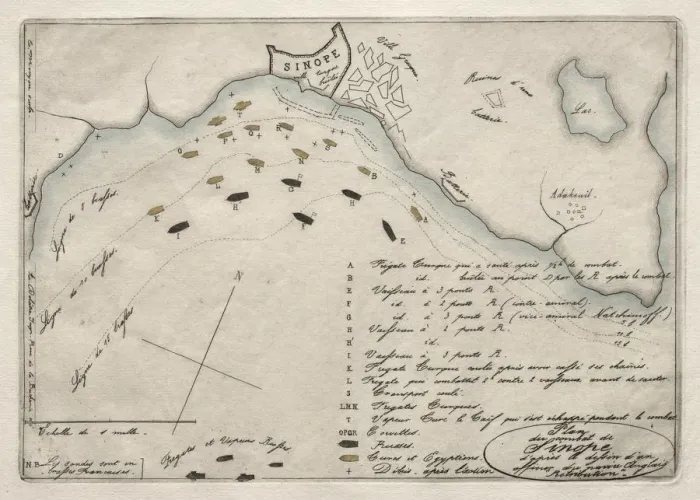 SINOPE
Ville Grecque
Ruines d'une
batterie.
Lac.
Batterie
Ligne de 5 brasses.
Ligne de 10 brasses.
Ligne de 15 brasses
N
Echelle de 1 mille.
N.B. Les sondes sont en
brasses Françaises.
Frégates et Vapeurs Russes
A Frégate Turque qui a sauté après ½ h de combat.
B id. brûlée au point D par les R. après le combat.
E Vaisseau à 3 ponts R.
F id. à 2 ponts R. (contre-amiral).
G id. à 3 ponts R. (vice-amiral Natchimoff)
H Vaisseau à 2 ponts R.
H' id.
I Vaisseau à 3 ponts R.
K Frégate Turque coulée après avoir cassé ses chaînes.
L Frégate qui combattit contre 2 vaisseaux avant de sauter.
S Transport coulé.
LMK Frégates Turques.
T Vapeur Turc le Taïf qui s'est échappé pendant le combat
OPQR Corvettes.
Russes
Turcs et Egyptiens.
+ Débris après l'action
Plan
du combat de
Sinope
d'après le dessin d'un
officier du navire Anglais
Retribution.